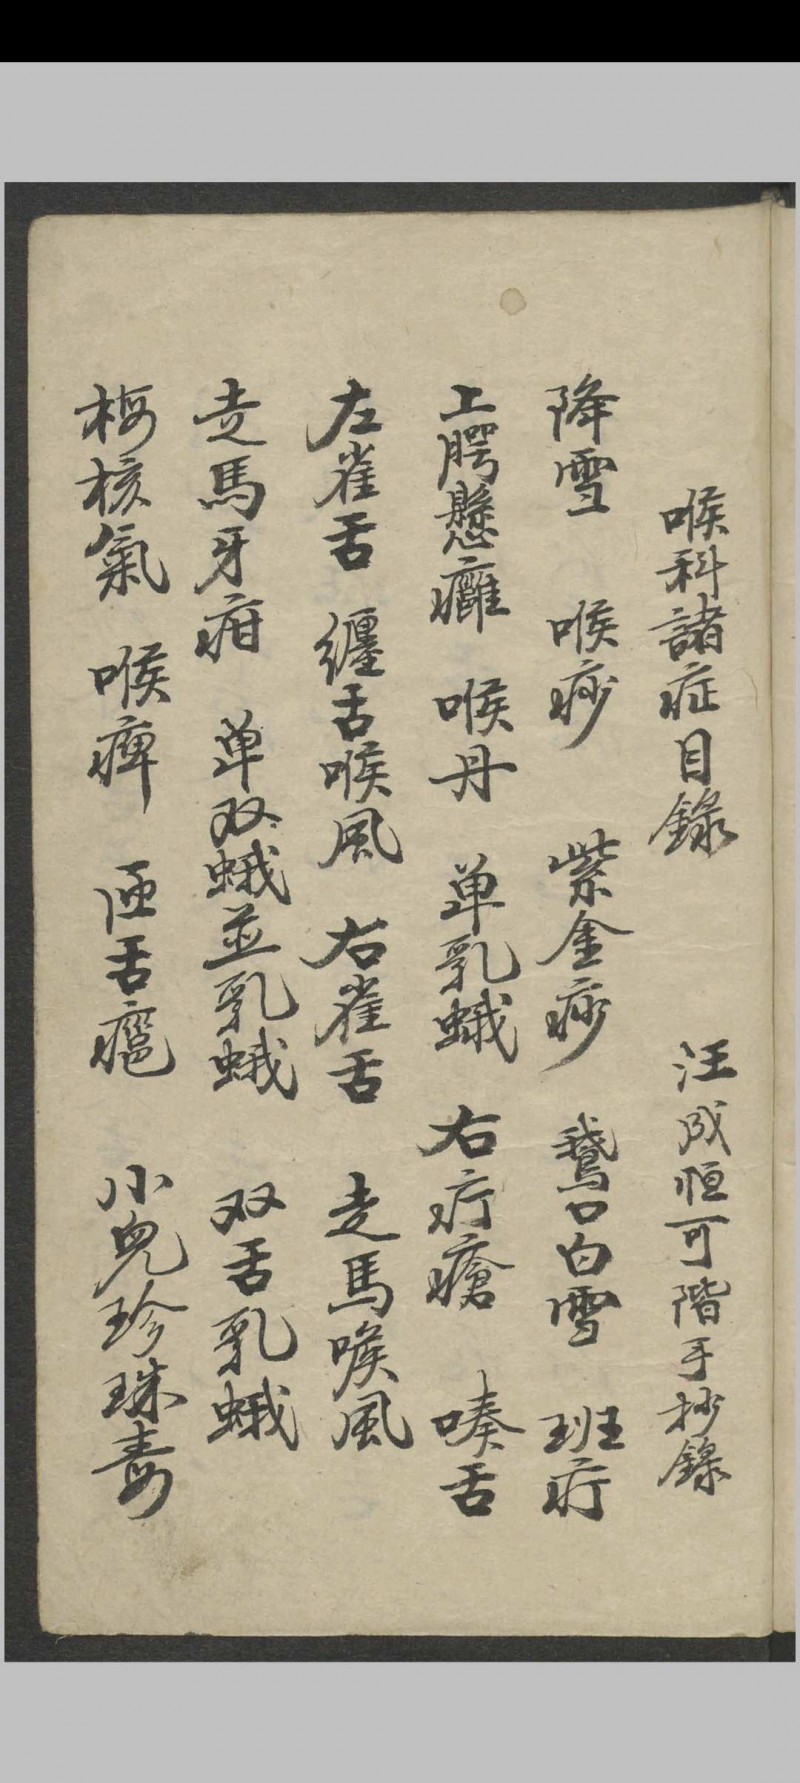 喉科諸症目錄 汪成恒可階手抄錄
降雪 喉痧 紫金痧 鵝口白雪 班疔
上腭懸癰 喉丹 单乳蛾 右疔瘡 嗪舌
左雀舌 纏舌喉風 右雀舌 走馬喉風
走馬牙疳 单双蛾並乳蛾 双舌乳蛾
梅核氣 喉痺 舌 小兒珍珠毒